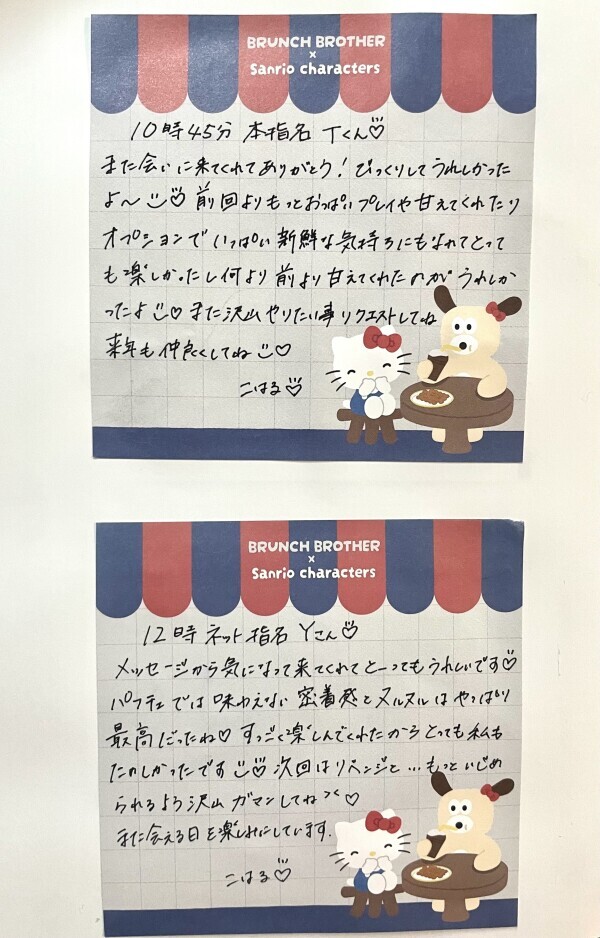 BRUNCH BROTHER
×
Sanrio characters
10時45分 本指名 Tくん♡
また会いに来てくれてありがとう！びっくりしてうれしかった
よ〜♡ 前回よりもっとおっぱいプレイや甘えてくれたり
オプションでいっぱい新鮮な気持ちにもなれてとって
も楽しかったし何より前より甘えてくれたのがうれしか
ったよ♡ また沢山やりたい事リクエストしてね
来年も仲良くしてね♡
こはる♡
BRUNCH BROTHER
×
Sanrio characters
12時 ネット指名 Yさん♡
メッセージから気になって来てくれてとーってもうれしいです♡
パフェでは味わえない密着感とヌルヌルはやっぱり
最高だったね♡ すっごく楽しんでくれたからとっても私も
たのしかったです♡ 次回はリベンジと…もっといじめ
られるよう沢山ガマンしてね♡
また会える日を楽しみにしています.
こはる♡